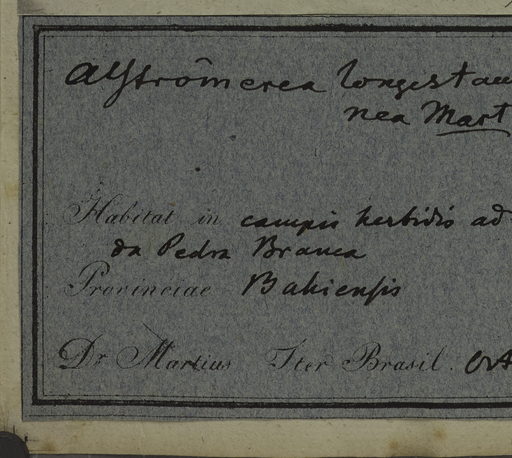 Alströmerea longestam
nea Mart
Habitat in campis herbidis ad
da Pedra Branca
Provinciae Bahiensis
Dr. Martius Iter Brasil.